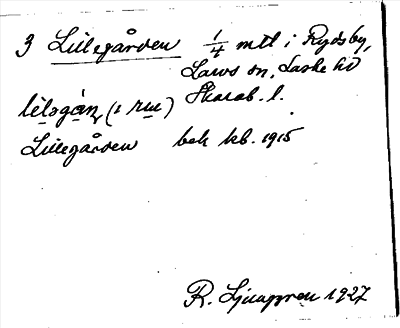 3 Lillegården 1/4 mtl i Rydsby,
Larvs sn, Laske hd
Skarab. l.
lìlsgàn (i rue)
Lillegården bek kb. 1915
R. Ljunggren 1927